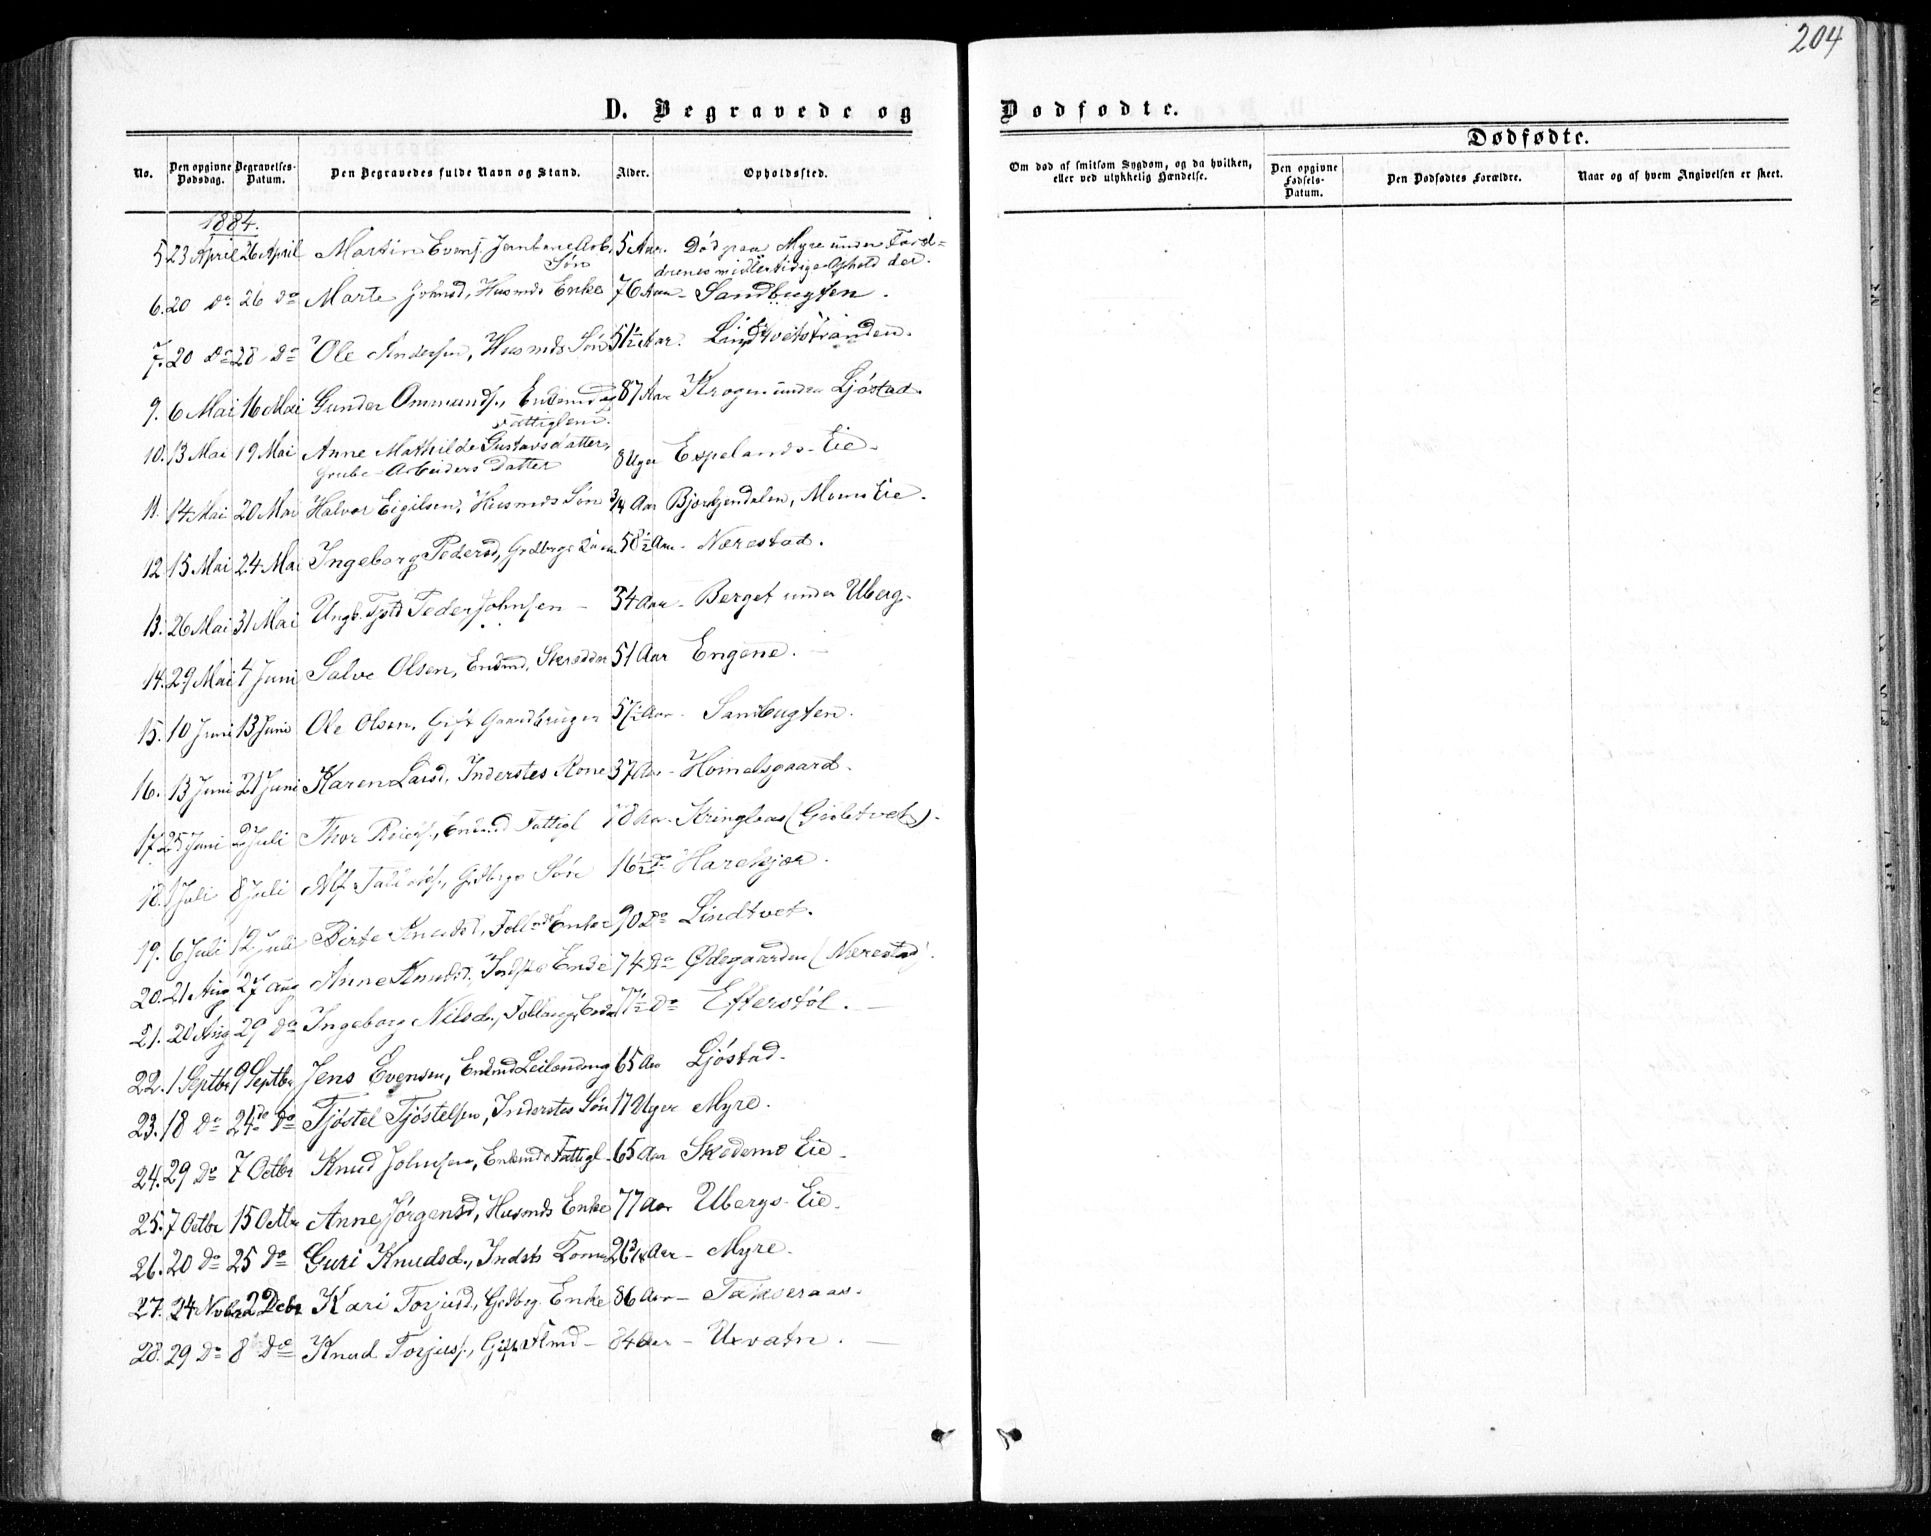 204
D. Begravede og Dødfødte.
No. Den opgivne Dødsdag. Begravelses-Datum. Den Begravedes fulde Navn og Stand. Alder. Opholdssted.
Om død af smitsom Sygdom, og da hvilken, eller ved ulykkelig Hændelse.
Dødfødte.
Den opgivne Fødsels-Datum. Den Dødfødtes Forældre. Naar og af hvem Angivelsen er skeet.
1884.
5. 23 April 26 April Martin Evens. Jernbane Arb. 5 Aar. Død paa Myre under Foræl=
Søn drenes midlertidige Ophold der.
6. 20 do 26 do Marte Johnsd, Husmds Enke 76 Aar - Sandbugten.
7. 20 do 28 do Ole Andersen, Husmds Søn 51½ Aar. Lindtveitstranden.
9. 6 Mai 16 Mai Gunder Ommunds., Enkemd og 87 Aar Krogen under Ljöstad.
Fattiglem.
10. 13 Mai 19 Mai Anne Mathilde Gustavsdatter, 8 Uger Espelands-Eie.
Grube-Arbeiders Datter
11. 14 Mai 20 Mai Halvor Eigilsen, Husmds Søn ¾ Aar Bjorkjendalen, Moms Eie.
12. 15 Mai 24 Mai Ingeborg Pedersd, Grdbrgs 58½ Aar - Nærestad.
13. 26 Mai 31 Mai Ungk. Peder Johnsen - 34 Aar - Berget under Uberg.
14. 29 Mai 4 Juni Salve Olsen, Enkmd, Skrædder 51 Aar Engene.
15. 10 Juni 13 Juni Ole Olsen, Gift Gaardbruger 57½ Aar - Sandbugten.
16. 13 Juni 21 Juni Karen Larsd, Inderstes Kone 37 Aar - Homelsgaard.
17. 25 Juni 2 Juli Thor, Enkmd Fattigl 78 Aar - Kringlaas
18. 1 Juli 8 Juli Alf, Grdbrgs Søn 16½ do Harekjær.
19. 6 Juli 12 Juli Birte Knudsd, Enke 90 Do Lindtvet.
20. 21 Aug 27 Aug Anne Knudsd, Enke 74 Do Ødegaarden (Nærestad).
21. 20 Aug 29 do Ingeborg Nilsd., Enke 77½ Do Efterstöl.
22. 1 Septbr 9 Septbr Jens Evensen, Enkmd Leilænding 65 Aar Ljöstad.
23. 18 Do 24 Do Tjöstel Tjöstelsen, Inderstes Søn 17 Uger Myre.
24. 29 Do 7 Octbr Knud Johnsen, Enkmd Fattigl. 65 Aar Skodemo Eie.
25. 7 Octbr 15 Octbr Anne Jörgensd, Husmds Enke 77 Aar Ubergs-Eie.
26. 20 Do 25 Do Guri Knudsd., Indsts Kone 26¾ Aar - Myre.
27. 24 Novbr 2 Decbr Kari Torjusd, Grdbrg. Enke 86 Aar - Takseraas.
28. 29 Do 8 Do Knud Torjus., Gift 84 Aar - Uxvatn.